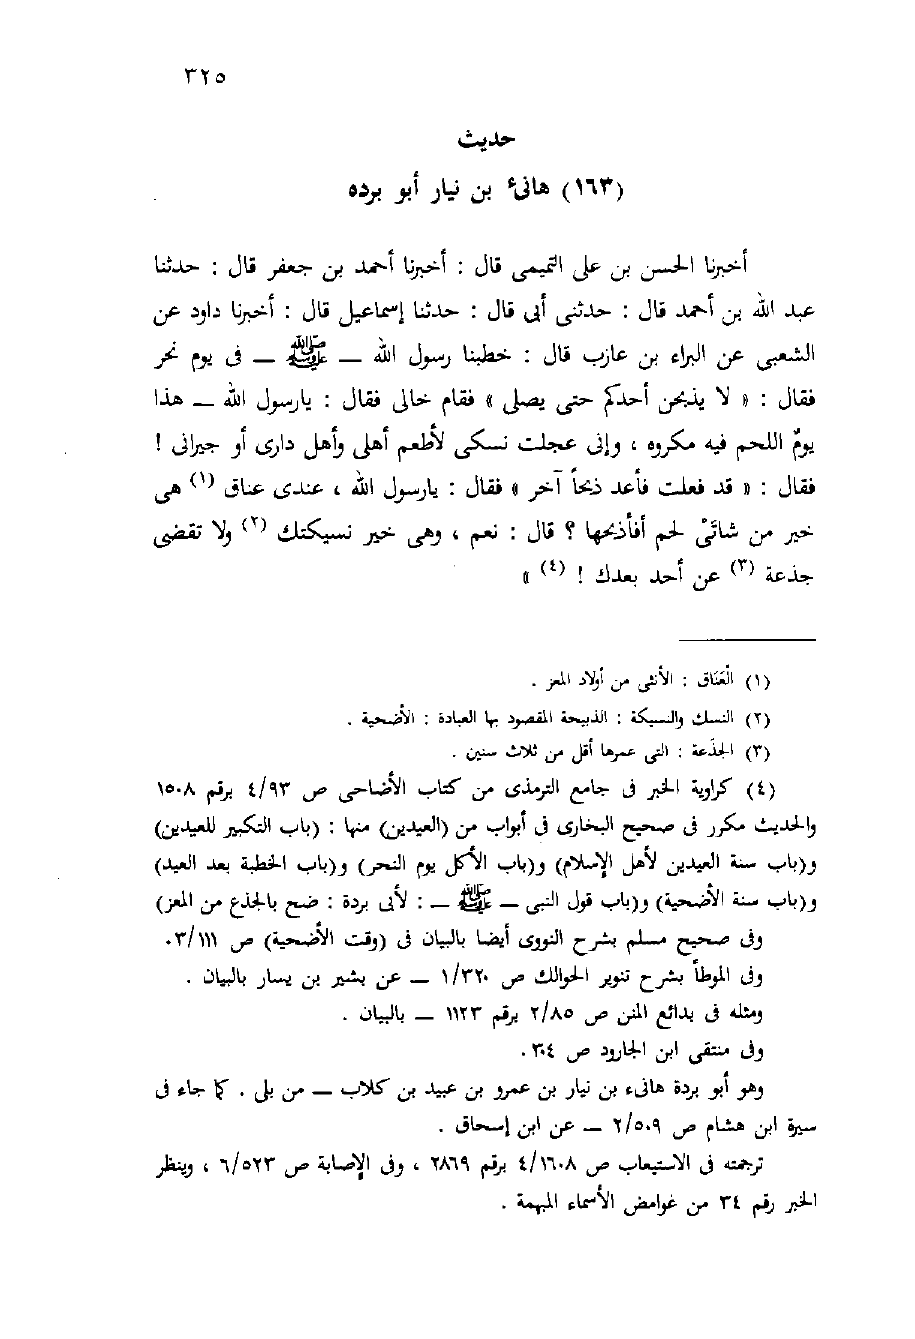 ٣٢٥
حديث
(١٦٣) هانئ بن نيار أبو برده
أخبرنا الحسن بن على التميمى قال : أخبرنا أحمد بن جعفر قال : حدثنا
عبد الله بن أحمد قال : حدثنى أبى قال : حدثنا إسماعيل قال : أخبرنا داود عن
الشعبى عن البراء بن عازب قال : خطبنا رسول الله — ﷺ — فى يوم نحر
فقال : « لا يذبحن أحدكم حتى يصلى » فقام خالى فقال : يارسول الله — هذا
يومٌ اللحم فيه مكروه ، وإنى عجلت نسكى لأطعم أهلى وأهل دارى أو جيرانى !
فقال : « قد فعلت فأعد ذبحاً آخر » فقال : يارسول الله ، عندى عناق (١) هى
خير من شاتَىْ لحم أفأذبحها ؟ قال : نعم ، وهى خير نسيكتك (٢) ولا تقضى
جذعة (٣) عن أحد بعدك ! (٤) »
(١) الْعَنَاق : الأنثى من أولاد المعز .
(٢) النسك والنسيكة : الذبيحة المقصود بها العبادة : الأضحية .
(٣) الجذَعة : التى عمرها أقل من ثلاث سنين .
(٤) كراوية الخبر فى جامع الترمذى من كتاب الأضاحى ص ٤/٩٣ برقم ١٥٠٨
والحديث مكرر فى صحيح البخارى فى أبواب من (العيدين) منها : (باب التكبير للعيدين)
و(باب سنة العيدين لأهل الإسلام) و(باب الأكل يوم النحر) و(باب الخطبة بعد العيد)
و(باب سنة الأضحية) و(باب قول النبى — ﷺ — : لأبى بردة : ضح بالجذع من المعز)
وفى صحيح مسلم بشرح النووى أيضا بالبيان فى (وقت الأضحية) ص ٣/١١١.
وفى الموطأ بشرح تنوير الحوالك ص ١/٣٢٠ — عن بشير بن يسار بالبيان .
ومثله فى بدائع المنن ص ٢/٨٥ برقم ١١٢٣ — بالبيان .
وفى منتقى ابن الجارود ص ٣٠٤.
وهو أبو بردة هانىء بن نيار بن عمرو بن عبيد بن كلاب — من بلى . كما جاء فى
سيرة ابن هشام ص ٢/٥٠٩ — عن ابن إسحاق .
ترجمته فى الاستيعاب ص ٤/١٦٠٨ برقم ٢٨٦٩ ، وفى الإصابة ص ٦/٥٢٣ ، وينظر
الخبر رقم ٣٤ من غوامض الأسماء المبهمة .